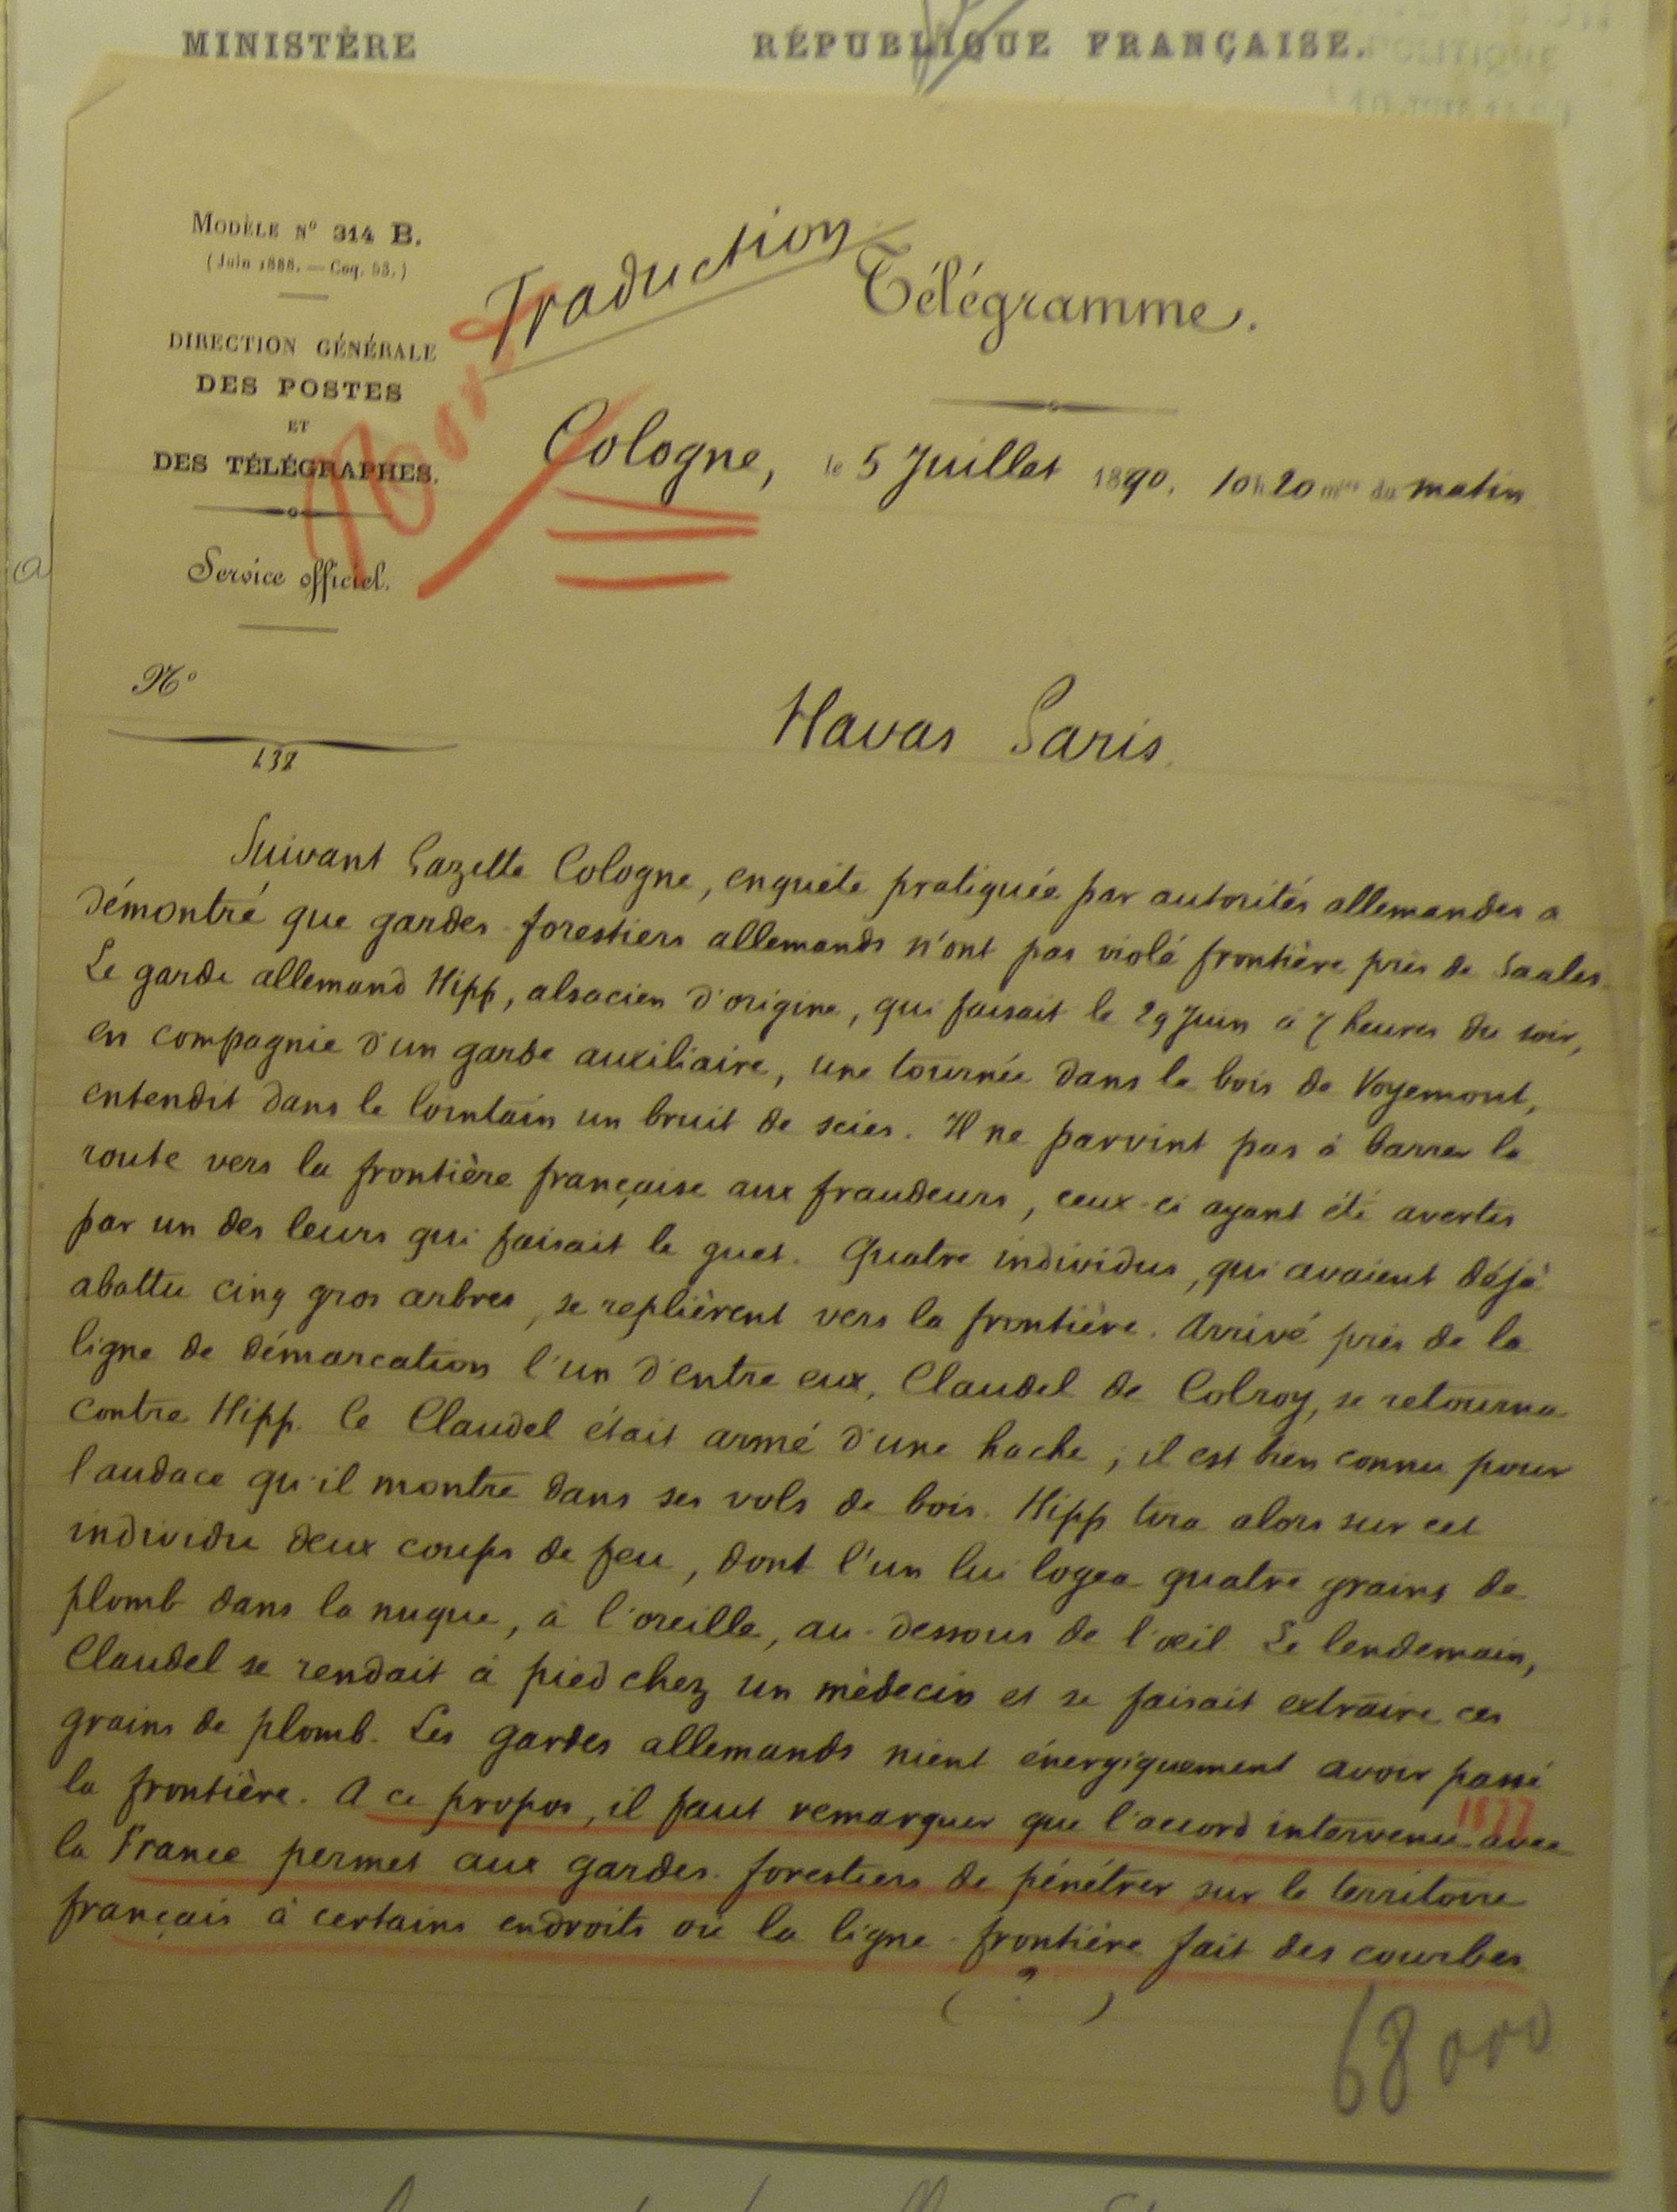 MINISTÈRE
RÉPUBLIQUE FRANÇAISE.
POLITIQUE
MODÈLE Nº 314 B.
(Juin 1888. — Coq. 53.)
Traduction
Télégramme.
DIRECTION GÉNÉRALE
DES POSTES
ET
DES TÉLÉGRAPHES.
Cologne, le 5 Juillet 1890, 10h 20 mtes du matin
Service officiel.
Nº
138
Havas Paris.
Suivant Gazette Cologne, enquête pratiquée par autorités allemandes a
démontré que gardes-forestiers allemands n'ont pas violé frontière près de Saales.
Le garde allemand Hipp, alsacien d'origine, qui faisait le 29 Juin à 7 heures du soir,
en compagnie d'un garde auxiliaire, une tournée dans le bois de Voyemont,
entendit dans le lointain un bruit de scies. Il ne parvint pas à barrer la
route vers la frontière française aux fraudeurs, ceux-ci ayant été avertis
par un des leurs qui faisait le guet. Quatre individus, qui avaient déjà
abattu cinq gros arbres, se replièrent vers la frontière. Arrivé près de la
ligne de démarcation l'un d'entre eux, Claudel de Colroy, se retourna
contre Hipp. Ce Claudel était armé d'une hache ; il est bien connu pour
l'audace qu'il montre dans ses vols de bois. Hipp tira alors sur cet
individu deux coups de feu, dont l'un lui logea quatre grains de
plomb dans la nuque, à l'oreille, au-dessous de l'œil. Le lendemain,
Claudel se rendait à pied chez un médecin et se faisait extraire ces
grains de plomb. Les gardes allemands nient énergiquement avoir passé
la frontière. A ce propos, il faut remarquer que l'accord intervenu 1877 avec
la France permet aux gardes-forestiers de pénétrer sur le territoire
français à certains endroits où la ligne-frontière fait des courbes
( ? )
68000